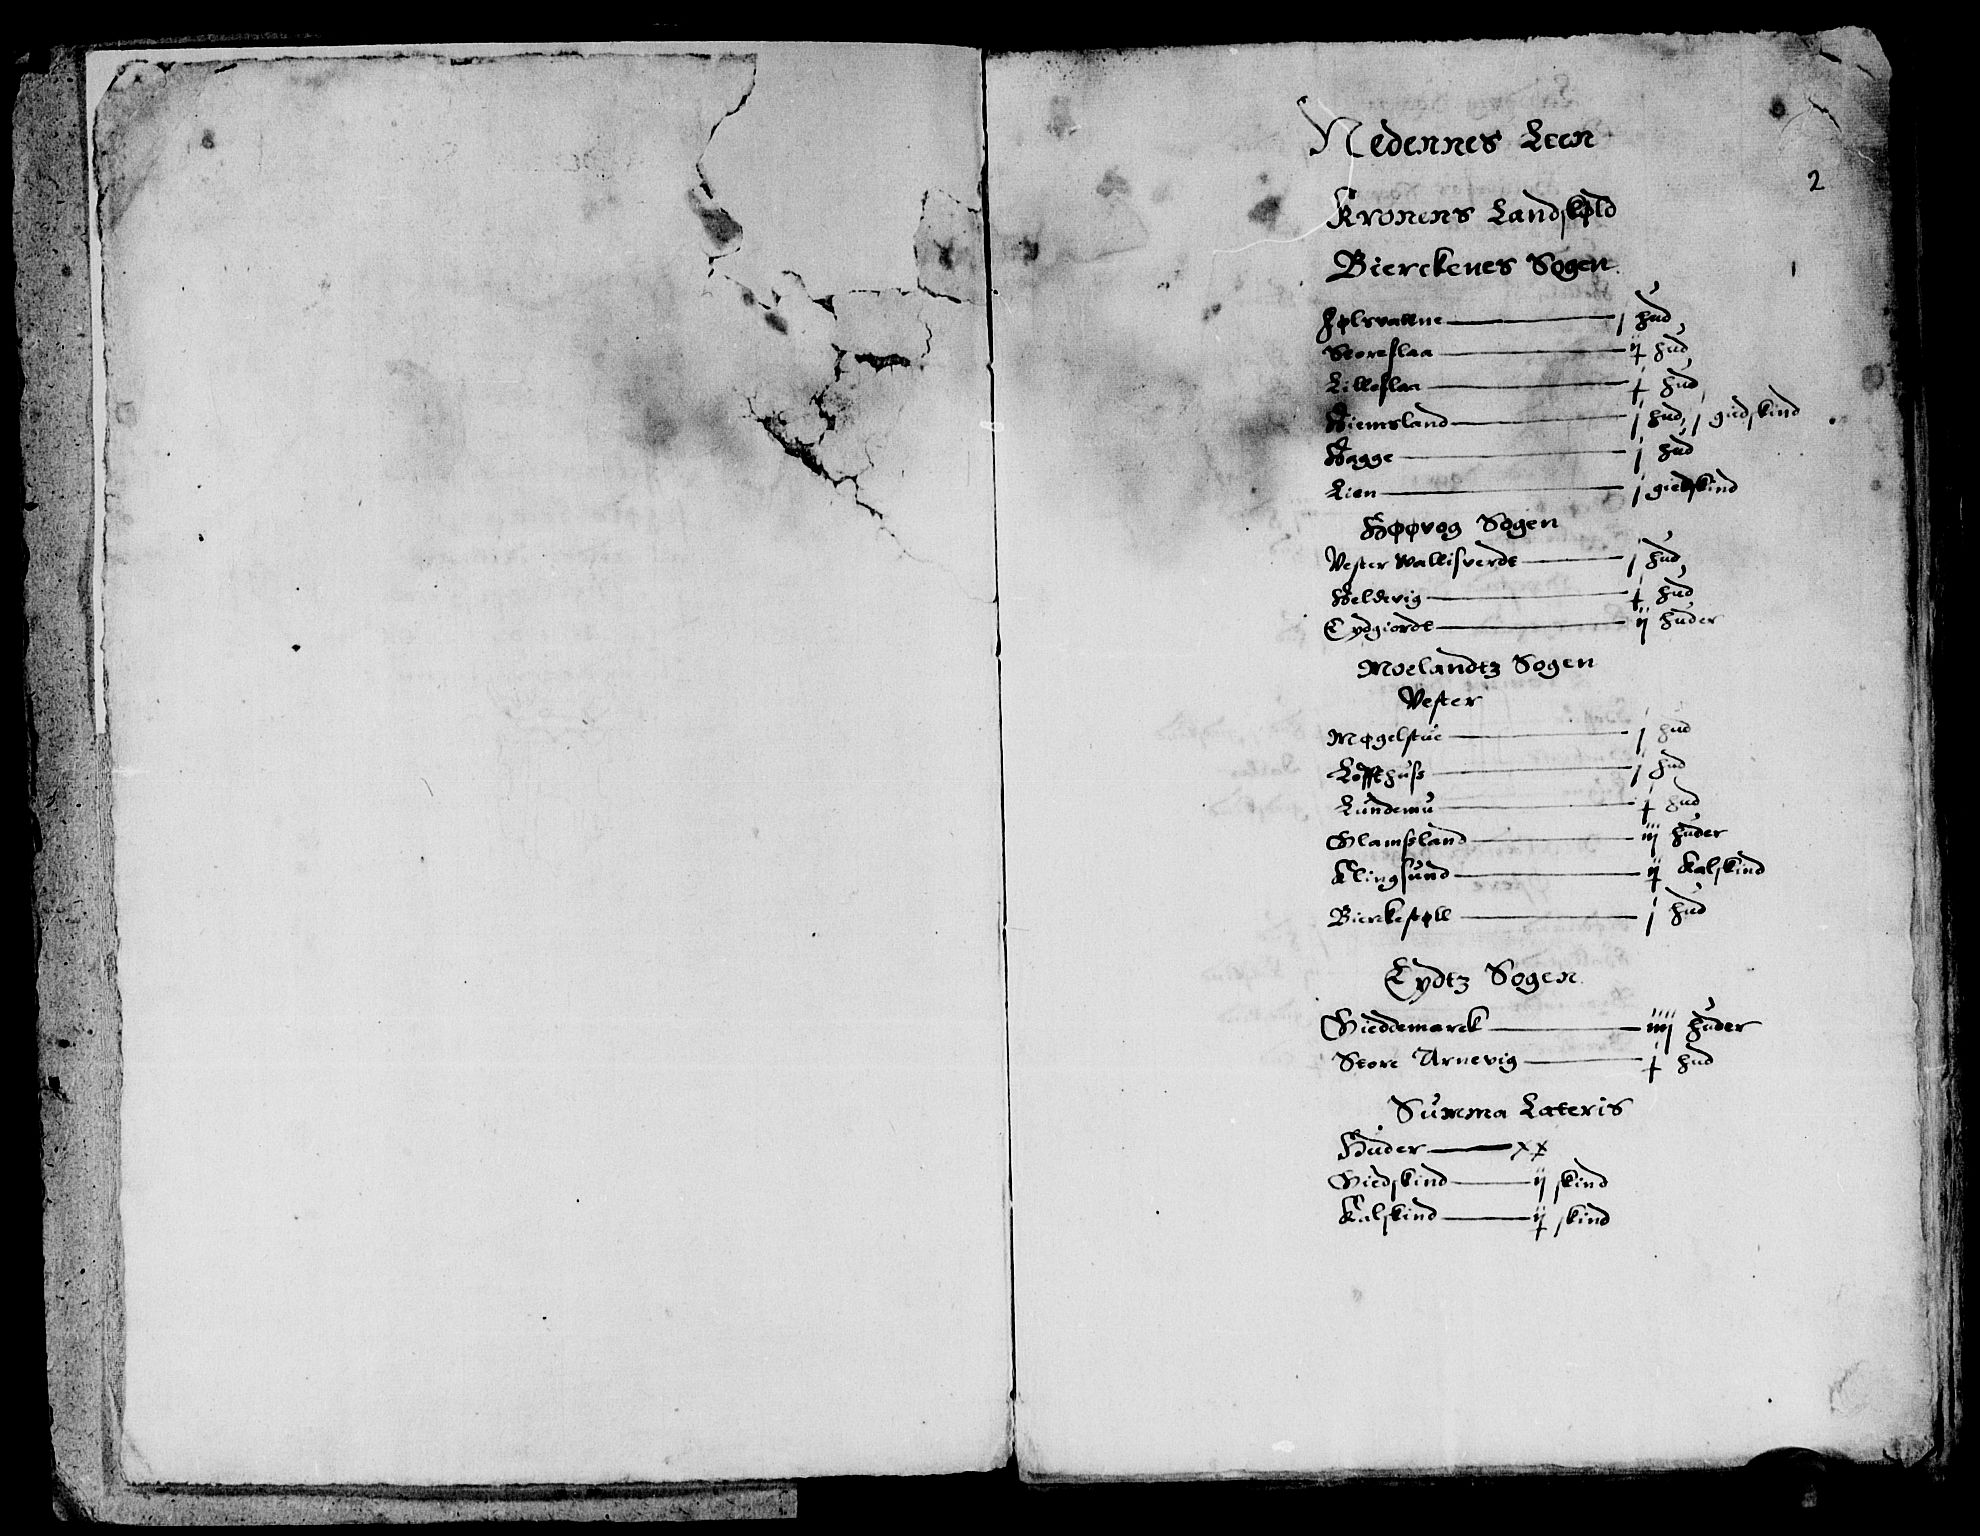 Nedennes Leen
2
Kronens Landskøld
Bierckenes Sogen
Jølsvattne j hud
Storeslaa ij hud
Lilleslaa j hud
Hiemsland j hud, j giedskind
Hagge j hud
Lien j giedskind
Høøvog Sogen
Vester Wallisverdt j hud
Heldevig j hud
Eydgiordt ij huder
Moelandtz Sogen
Vester
Møgelstue j hud
Loffthuss j hud
Lundemu j hud
Glamsland iij huder
Klingsund ij Kalskind
Bierkestøll j hud
Eydtz Sogen
Gieddemarck iiij huder
Store Arnevig j hud
Summa Lateris
Huder xx
Giedskind ij skind
Kalskind ij skind